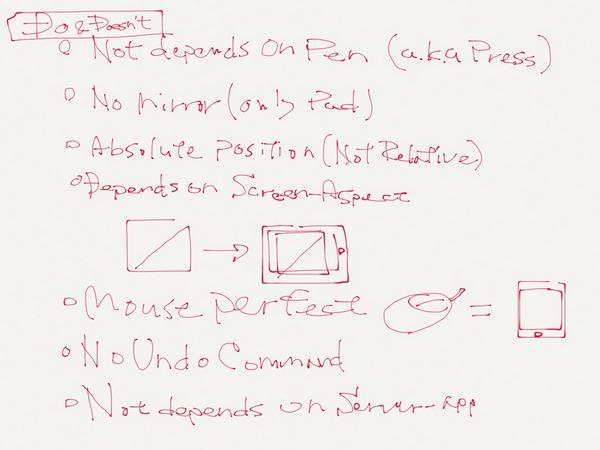 Do & Doesn't
Not depends on Pen (a.k.a Press)
No Mirror (only Pad)
Absolute Position (Not Relative)
Depends on Screen-Aspect
Mouse perfect =
No Undo Command
Not depends on Server-app